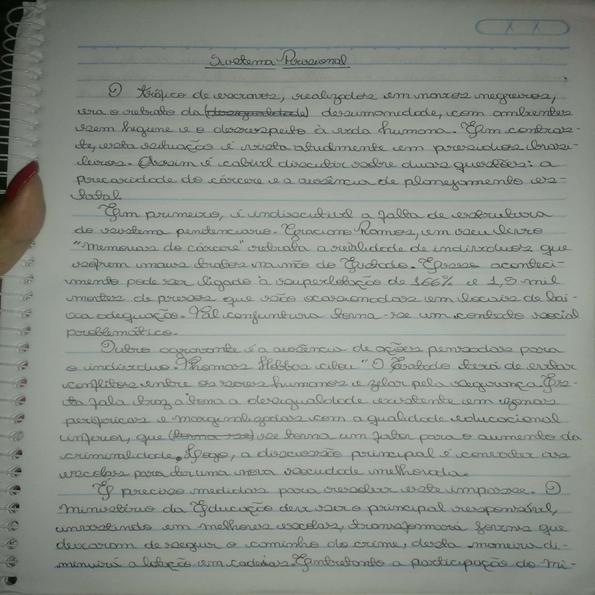 Sistema Prisional
O tráfico de escravos, realizados em navios negreiros,
era o retrato da (desigualdade) desumanidade, com ambientes
sem higiene e o desrespeito à vida humana. Em contras-
te, esta situação é vista atualmente em presídios brasi-
leiros. Assim é cabível discutir sobre duas questões: a
precariedade do cárcere e a ausência de planejamento es-
tatal.
Em primeiro, é indiscutível a falta de estrutura
do sistema penitenciário. Graciano Ramos, em seu livro
"Memórias do cárcere" retrata a realidade de indivíduos que
sofrem maus tratos na mão do Estado. Esse aconteci-
mento pode ser ligado à superlotação de 166% e 1,5 mil
mortes de presos que são ocasionadas em locais de bai-
xa adequação. Tal conjuntura torna-se um contrato social
problemático.
Outro agravante é a ausência de ações pensadas para
o indivíduo. Thomas Hobbes citou "O Estado terá de evitar
conflitos entre os seres humanos e zelar pela segurança. Es-
ta fala traz à tona a desigualdade existente em zonas
periféricas e marginalizadas com a qualidade educacional
inferior, que (torna-se) se torna um fator para o aumento da
criminalidade. Logo, a discussão principal é consertar as
escolas para ter uma nova sociedade melhorada.
É preciso medidas para resolver este impasse. O
ministério da Educação deve ser o principal responsável,
investindo em melhores escolas, transformará jovens que
deixaram de seguir o caminho do crime, desta maneira di-
minuirá a lotação em cadeias. Entretanto a participação do mi-